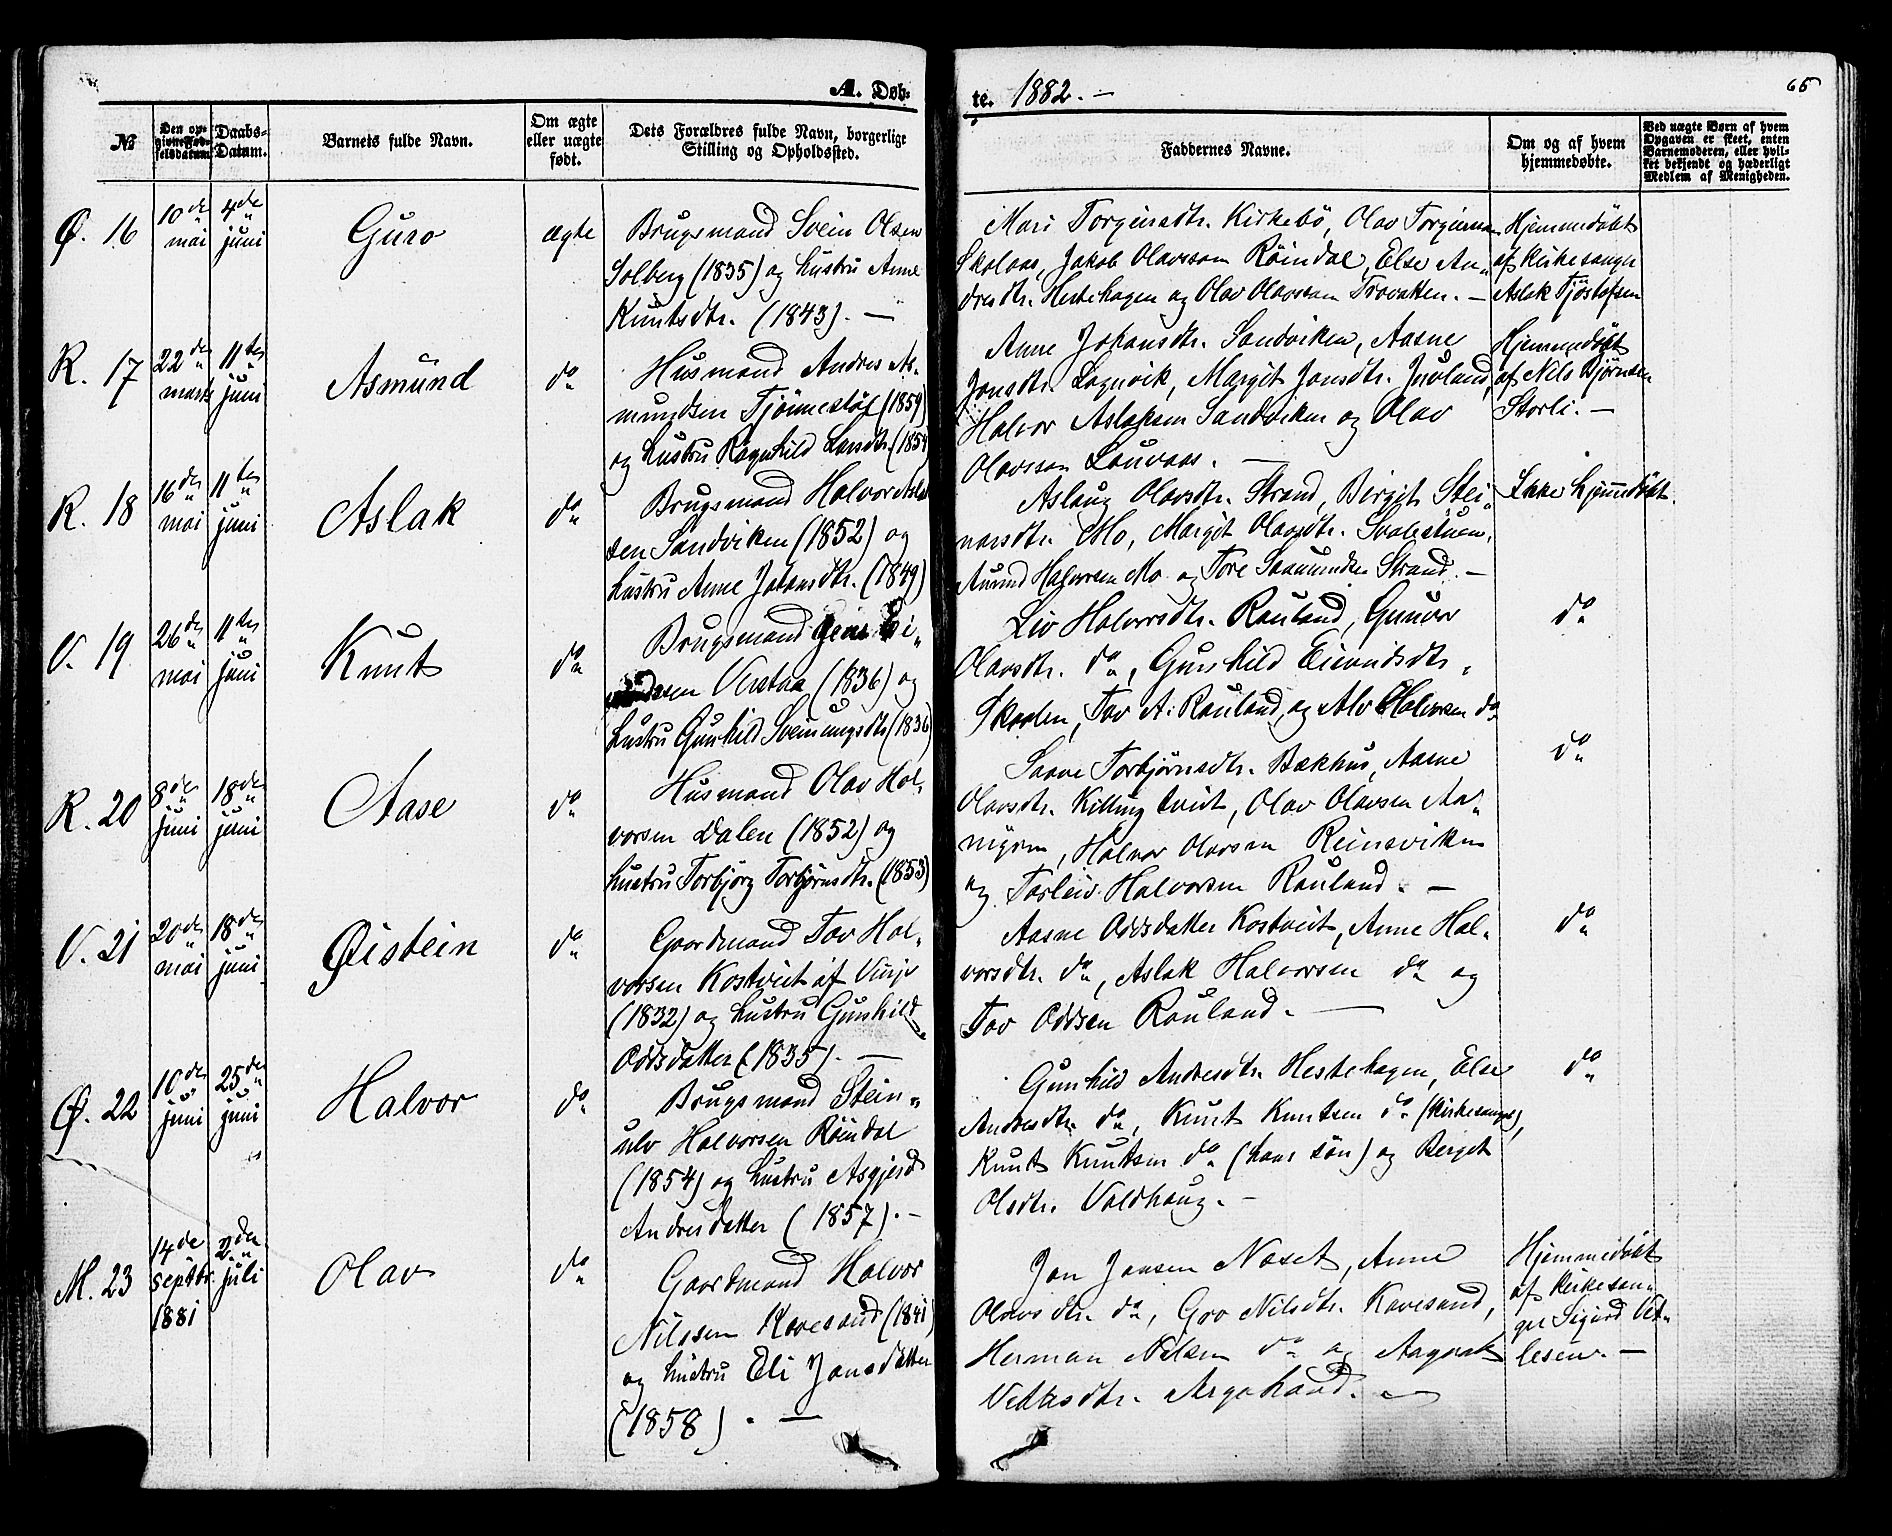 A. Døb-
te. 1882. —
65
№
Den op-
givne Fød-
selsdatum.
Daabs-
Datum.
Barnets fulde Navn.
Om ægte
eller uægte
født.
Dets Forældres fulde Navn, borgerlige
Stilling og Opholdssted.
Faddernes Navne.
Om og af hvem
hjemmedøbte.
Ved uægte Børn af hvem
Opgaven er skeet, enten
Barnemoderen, eller hvil-
ket bekjendt og hæderligt
Medlem af Menigheden.
Ø. 16
10de
mai
4de
juni
Guro
ægte
Brugsmand Svein Olsen
Solberg (1835) og hustru Anne
Knutsdtr. (1843). —
Mari Torgeirsdtr. Kirkebö, Olav
Skolaas, Jakob Olavsson Röindal, Else An-
dresdtr. Hestehagen og Olav Olavsson —
Hjemmedøbt
af Kirkesanger
Aslak Tjöstofsen
R. 17
22de
marts
11te
juni
Asmund
do
Husmand Andres As-
mundsen (1859)
og hustru Ragnhild Larsdtr. (1854
Anne Johansdtr. Sandviken, Aasne
Jonsdtr. Lognvik, Margit Jonsdtr. Juvland,
Halvor Aslaksen Sandviken og Olav
Olavsson —
Hjemmedøbt
af Nils Bjørnsen
Storli. —
R. 18
16de
mai
11te
juni
Aslak
do
Brugsmand Halvor Aslak
sen Sandviken (1852) og
hustru Anne Johansdtr. (1849)
Aslaug Olavsdtr. Strand, Birgit Stei-
narsdtr. Mo, Margit Olavsdtr.
Halvorsen Mo og Tore Strand. —
Ikke hjemdöbt.
V. 19
26de
mai
11te
juni
Knut
do
Brugsmand Geir Ei-
sen Verstaa (1836) og
hustru Gunhild Sveinungsdtr (1836)
Liv Halvorsdtr. Rauland, Gunvor
Olavsdtr. do, Gunhild Eivindsdtr.
Tov A. Rauland og Halvorsen do
do
R. 20
8de
juni
18de
juni
Aase
do
Husmand Olav Hal-
vorsen Dalen (1852) og
hustru Torbjörg Torbjörnsdtr. (1853)
Torbjörnsdtr. Bakhus, Aasne
Olavsdtr. Killingtveit, Olav Olavsen
Halvor Olavsen Reinsviken
og Torleiv Halvorsen Rauland. —
do
V. 21
20de
mai
18de
juni
Øistein
do
Gaardmand Tov Hal-
vorsen Kostveit af Vinje
(1832) og hustru Gunhild
Oddsdatter (1835). —
Aasne Oddsdatter Kostveit, Anne Hal-
vorsdtr. do, Aslak Halvorsen do og
Tov Oddsen Rauland. —
do
Ø. 22
10de
juni
25de
juni
Halvor
do
Brugsmand Stein-
ulv Halvorsen Röindal
(1854) og hustru Asgjerd
Andresdatter (1857). —
Gunhild Andresdtr. Hestehagen, Else
Andresdtr. do, Knut Knutsen do (Kirkesanger),
Knut Knutsen do (hans sön) og Berget
Olsdtr. Valdhaug. —
do
M. 23
14de
septbr.
1881
2den
juli
Olav
do
Gaardmand Halvor
Nilssen Kavesand (1841)
og hustru Eli Jonsdatter
(1858). —
Jon Jonsen Næset, Anne
Olavsdtr. do, Gro Nilsdtr. Kavesand,
Herman Nilsen do og Aagot
Argehovd. —
Hjemmedøbt
af Kirkesan-
ger Sigurd Vet-
lesen. —